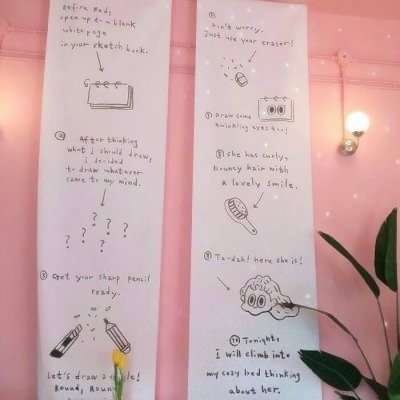 Before bed,
open up to a blank
white page
in your sketch book.
② After thinking
what I should draw,
I decided
to draw whatever
came to my mind.
? ? ? ? ? ?
③ Get your sharp pencil
ready.
Let's draw a circle!
Round, Round
⑥
Don't worry.
Just use your eraser!
⑦ Draw some
twinkling eyes too!
⑧ She has curly,
bouncy hair with
a lovely smile.
⑨ Ta-dah! here she is!
⑩ Tonight,
I will climb into
my cozy bed thinking
about her.